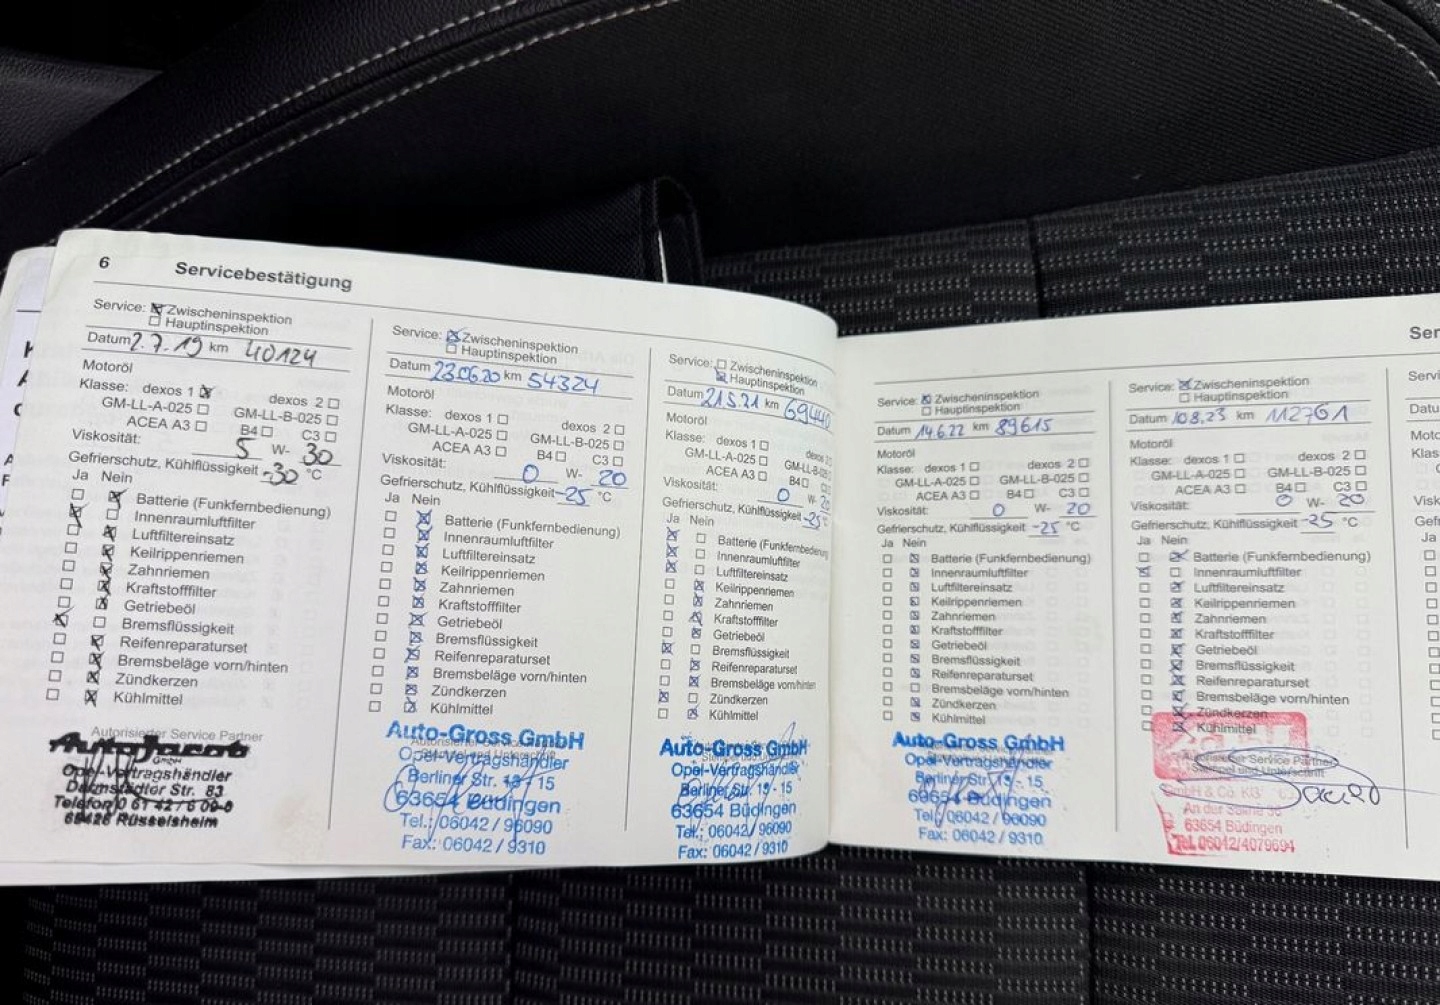 6 Servicebestätigung
Service: Zwischeninspektion
Hauptinspektion
Datum 2.7.19 km 40124
Motoröl
Klasse: dexos 1 dexos 2
GM-LL-A-025 GM-LL-B-025
ACEA A3 B4 C3
Viskosität: 5 W- 30
Gefrierschutz, Kühlflüssigkeit -30 °C
Ja Nein
Batterie (Funkfernbedienung)
Innenraumluftfilter
Luftfiltereinsatz
Keilrippenriemen
Zahnriemen
Kraftstofffilter
Getriebeöl
Bremsflüssigkeit
Reifenreparaturset
Bremsbeläge vorn/hinten
Zündkerzen
Kühlmittel
Autorisierter Service Partner
Auto Jacob
GmbH
Opel-Vertragshändler
Darmstädter Str. 83
Telefon 0 61 42 / 6 00-0
65428 Rüsselsheim
Service: Zwischeninspektion
Hauptinspektion
Datum 23.06.20 km 54324
Motoröl
Klasse: dexos 1 dexos 2
GM-LL-A-025 GM-LL-B-025
ACEA A3 B4 C3
Viskosität: 0 W- 20
Gefrierschutz, Kühlflüssigkeit -25 °C
Ja Nein
Batterie (Funkfernbedienung)
Innenraumluftfilter
Luftfiltereinsatz
Keilrippenriemen
Zahnriemen
Kraftstofffilter
Getriebeöl
Bremsflüssigkeit
Reifenreparaturset
Bremsbeläge vorn/hinten
Zündkerzen
Kühlmittel
Auto-Gross GmbH
Opel-Vertragshändler
Berliner Str. 13 - 15
63654 Büdingen
Tel.: 06042 / 96090
Fax: 06042 / 9310
Service: Zwischeninspektion
Hauptinspektion
Datum 21.5.21 km 69440
Motoröl
Klasse: dexos 1 dexos
GM-LL-A-025 GM-LL-B-025
ACEA A3 B4
Viskosität: 0 W- 20
Gefrierschutz, Kühlflüssigkeit -25°C
Ja Nein
Batterie (Funkfernbedienung
Innenraumluftfilter
Luftfiltereinsatz
Keilrippenriemen
Zahnriemen
Kraftstofffilter
Getriebeöl
Bremsflüssigkeit
Reifenreparaturset
Bremsbeläge vorn/hinten
Zündkerzen
Kühlmittel
Auto-Gross GmbH
Opel-Vertragshändler
Berliner Str. 13 - 15
63654 Büdingen
Tel.: 06042 / 96090
Fax: 06042 / 9310
Service: Zwischeninspektion
Hauptinspektion
Datum 14.6.22 km 89615
Motoröl
Klasse: dexos 1 dexos 2
GM-LL-A-025 GM-LL-B-025
ACEA A3 B4 C3
Viskosität: 0 W- 20
Gefrierschutz, Kühlflüssigkeit -25 °C
Ja Nein
Batterie (Funkfernbedienung)
Innenraumluftfilter
Luftfiltereinsatz
Keilrippenriemen
Zahnriemen
Kraftstofffilter
Getriebeöl
Bremsflüssigkeit
Reifenreparaturset
Bremsbeläge vorn/hinten
Zündkerzen
Kühlmittel
Auto-Gross GmbH
Opel-Vertragshändler
Berliner Str. 13 - 15
63654 Büdingen
Tel.: 06042 / 96090
Fax: 06042 / 9310
Ser
Service: Zwischeninspektion
Hauptinspektion
Datum 10.8.23 km 112761
Motoröl
Klasse: dexos 1 dexos 2
GM-LL-A-025 GM-LL-B-025
ACEA A3 B4 C3
Viskosität: 0 W- 20
Gefrierschutz, Kühlflüssigkeit -25 °C
Ja Nein
Batterie (Funkfernbedienung)
Innenraumluftfilter
Luftfiltereinsatz
Keilrippenriemen
Zahnriemen
Kraftstofffilter
Getriebeöl
Bremsflüssigkeit
Reifenreparaturset
Bremsbeläge vorn/hinten
Zündkerzen
Kühlmittel
Service Partner
Stempel und Unterschrift
GmbH & Co.
63654 Büdingen
Tel. 06042/4079694
Servi
Datu
Moto
Klas
Visk
Gef
Ja